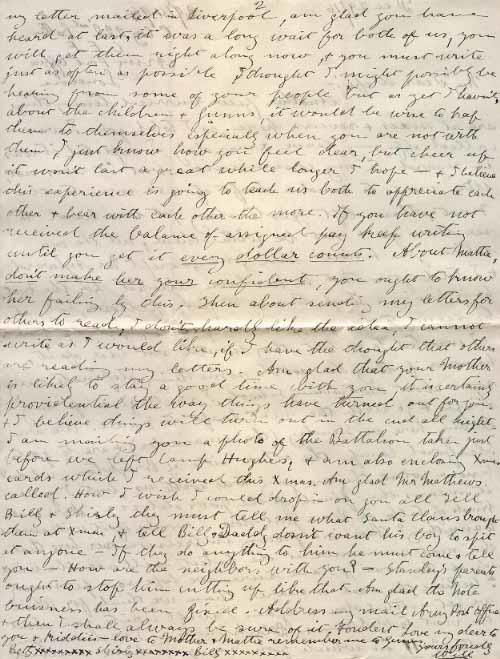 2
my letter mailed in Liverpool, am glad you have
heard at last, it was a long wait for both of us, you
will get them right along now, & you must write
just as often as possible I thought I might possibly be
hearing from some of your people but as yet I haven't
about the children & Gunns, it would be wise to keep
them to themselves especially when you are not with
them, I just know how you feel dear, but cheer up
it won't last a great while longer I hope — & I believe
this experience is going to teach us both to appreciate each
other & bear with each other the more. If you have not
received the balance of assigned pay keep writing
until you get it every dollar counts. About Mattie,
don't make her your confident, you ought to know
her failing by this. Then about sending my letters for
others to read, I don't hardly like the idea, I cannot
write as I would like, if I have the thought that others
are reading my letters. Am glad that your Mother
is likely to stay a good time with you, it is certainly
providential the way things have turned out for you
& I believe things will turn out in the end all right.
I am mailing you a photo of the Battalion taken just
before we left Camp Hughes, & am also enclosing Xmas
cards which I received this Xmas. Am glad Mr Mathews
called. How I wish I could drop in on you all Tell
Bill & Shirly they must tell me what Santa Claus brought
them at Xmas, & tell Bill Daddy doesn't want his boy to spit
at anyone. If they do anything to him he must come & tell
you — How are the neighbors with you? — Stanley's parents
ought to stop him cutting up like that. Am glad the Note
business has been fixed. Address my mail Army Post Office
& then I shall always be sure of it. Fondest love my dearest
you & kiddies — love to Mother & Mattie remember me to
Yours lovingly
Betty xxxxxxxx Shirly xxxxxxxx Bill xxxxxxxxx Will